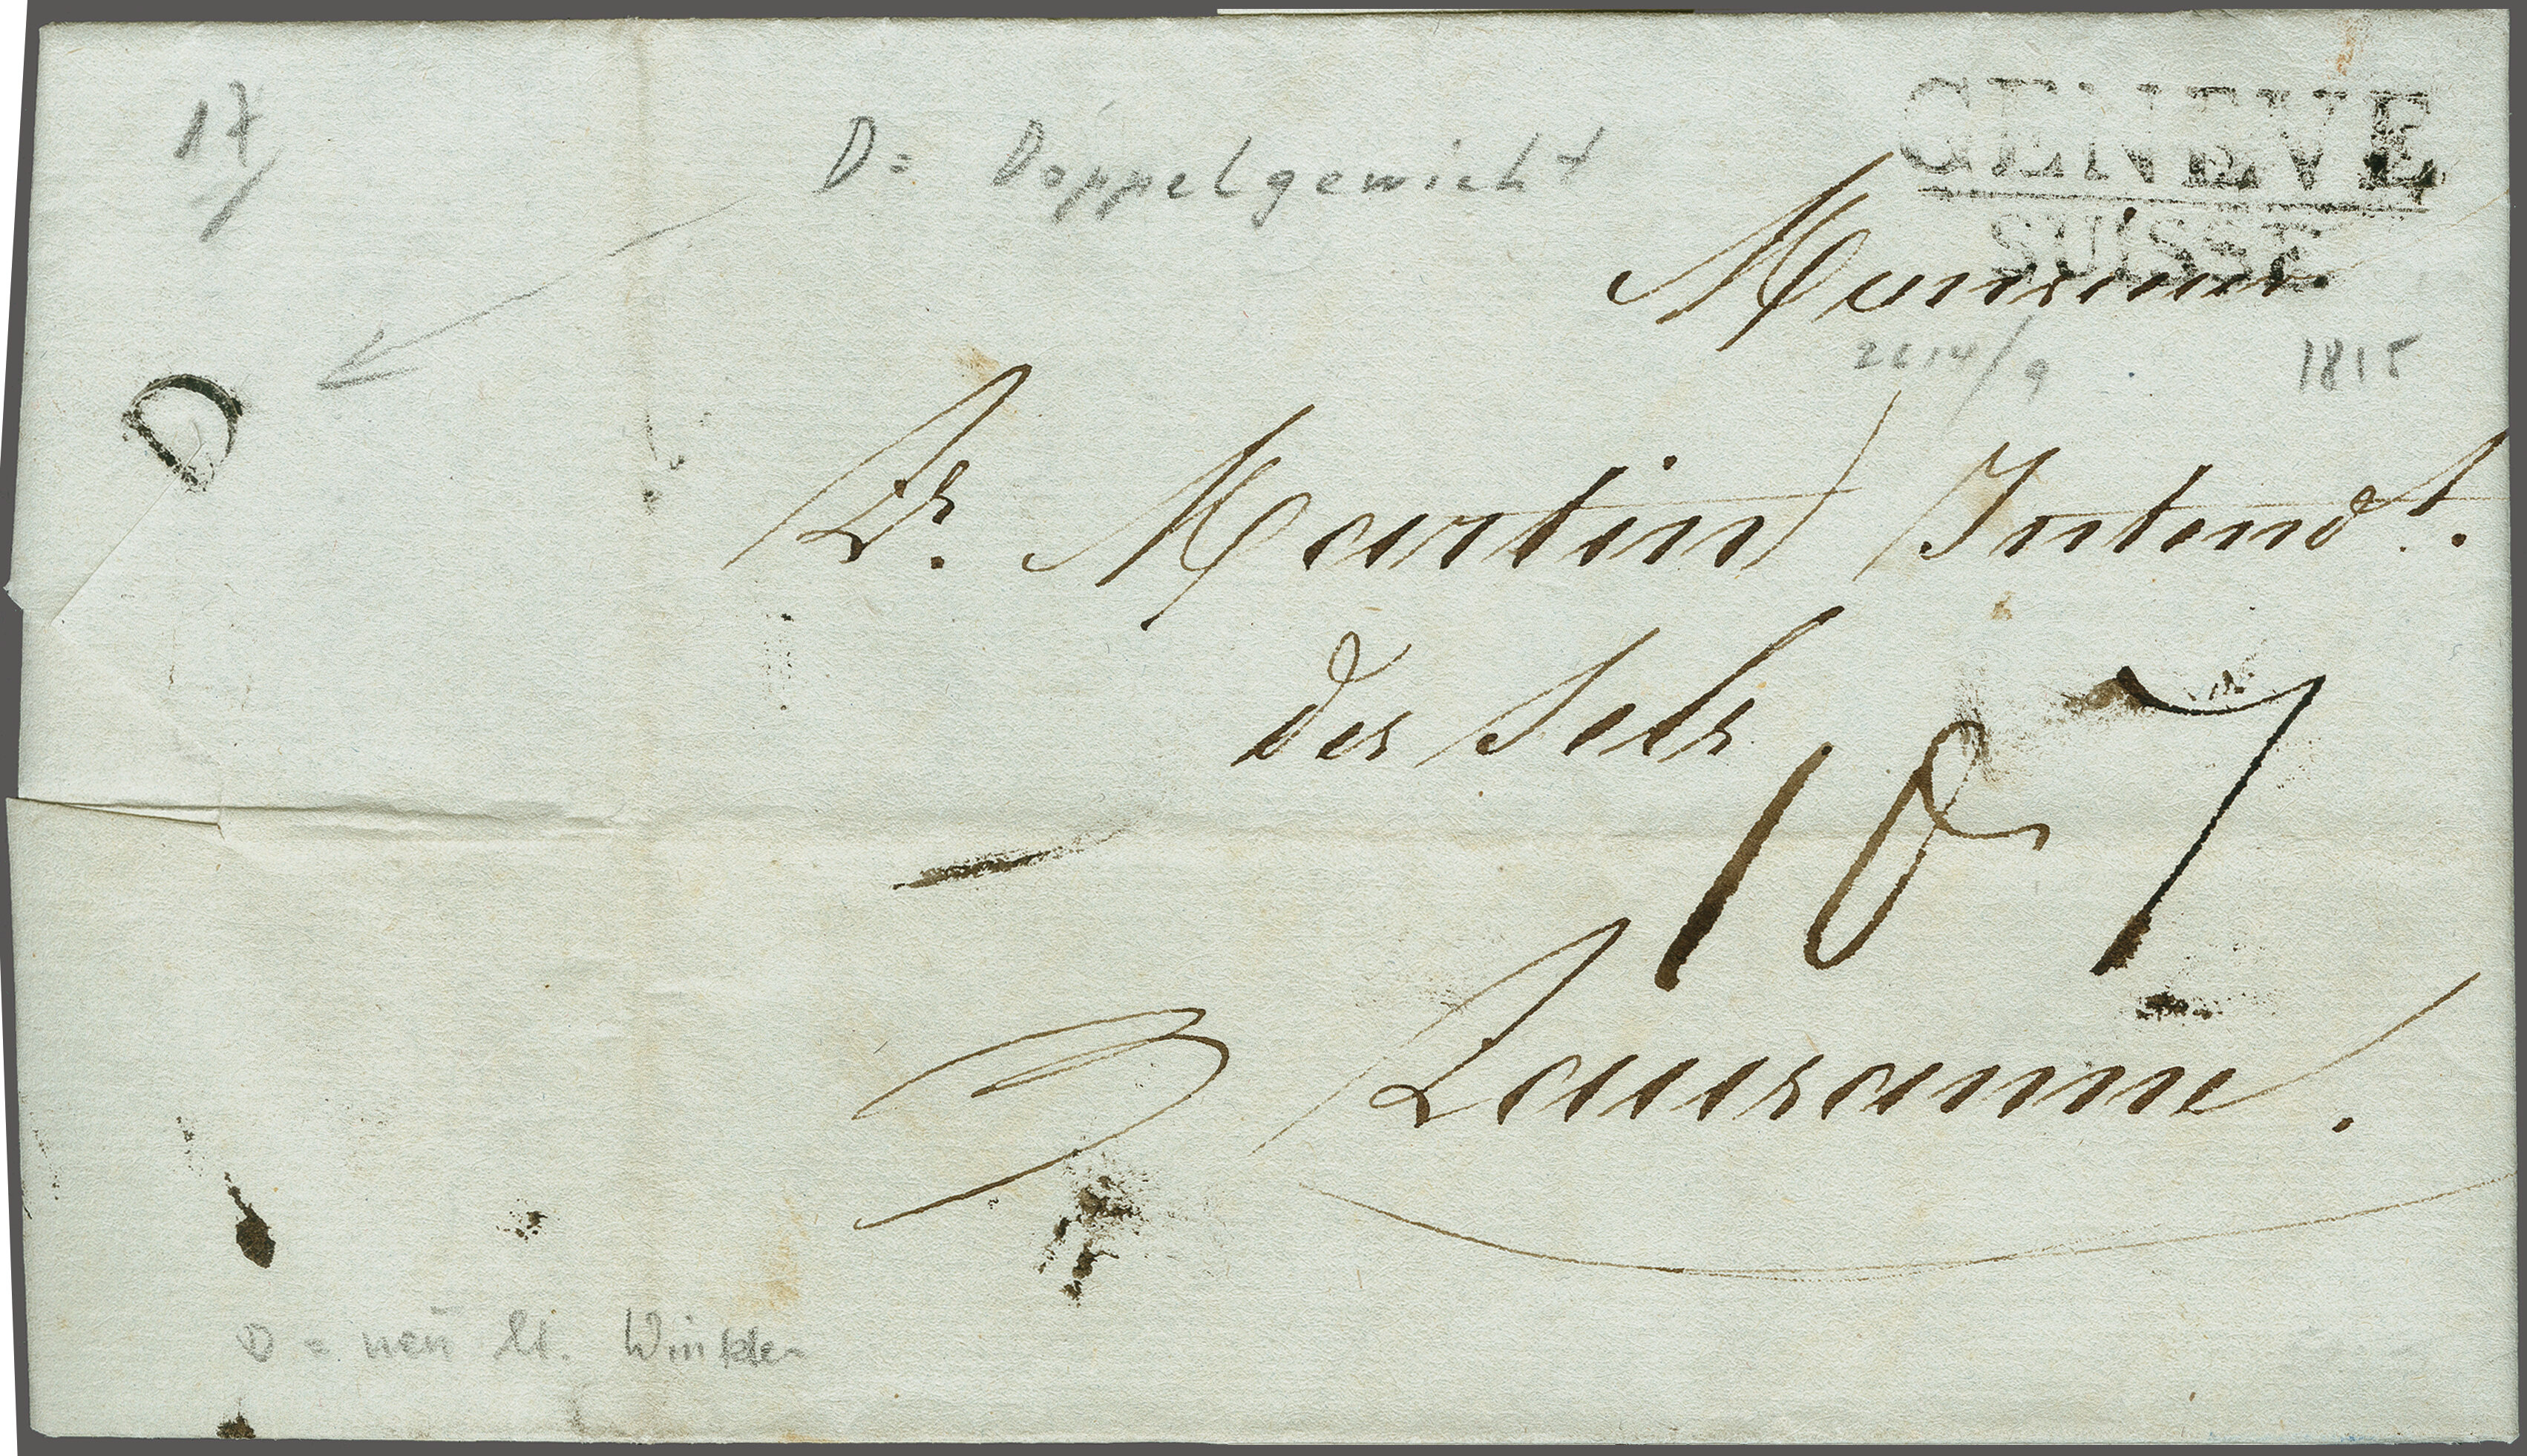 17
D = Doppelgewicht
GENEVE
SUISSE
Monsieur
2614/9
1815
D
Ls. Martin Intendt.
des Sels
10 7
Lausanne.
D = neu lt. Winkler